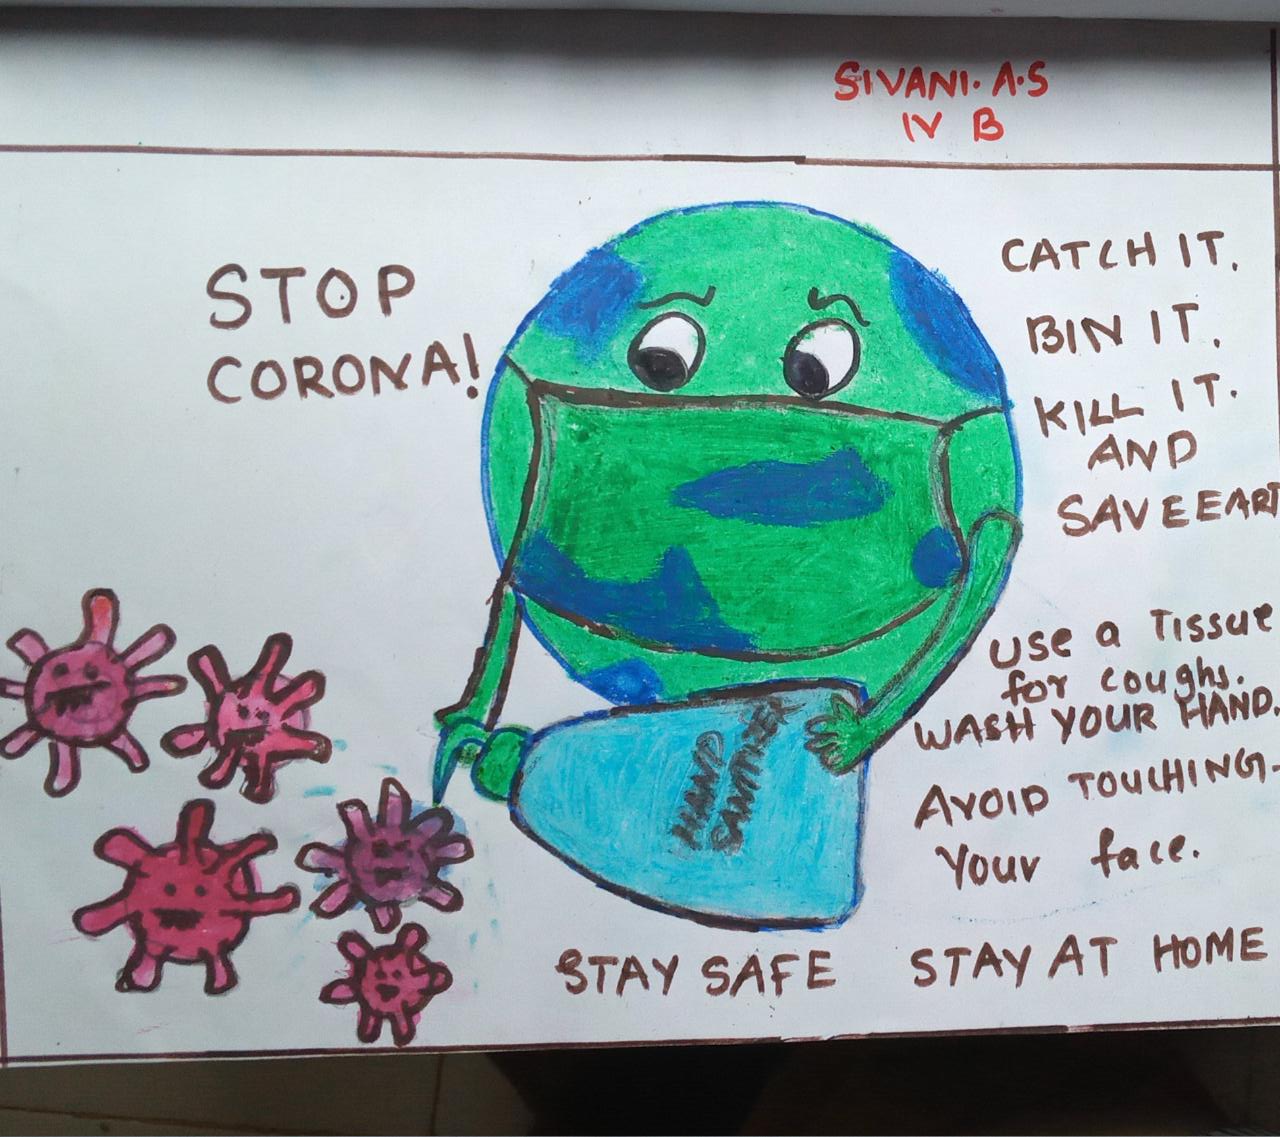 SIVANI. A.S
IV B
STOP
CORONA!
CATCH IT.
BIN IT.
KILL IT.
AND
SAVE EART
USE a TISSUE
for coughs.
WASH YOUR HAND.
AVOID TOUCHING
Your face.
HAND
SANITIZER
STAY SAFE STAY AT HOME